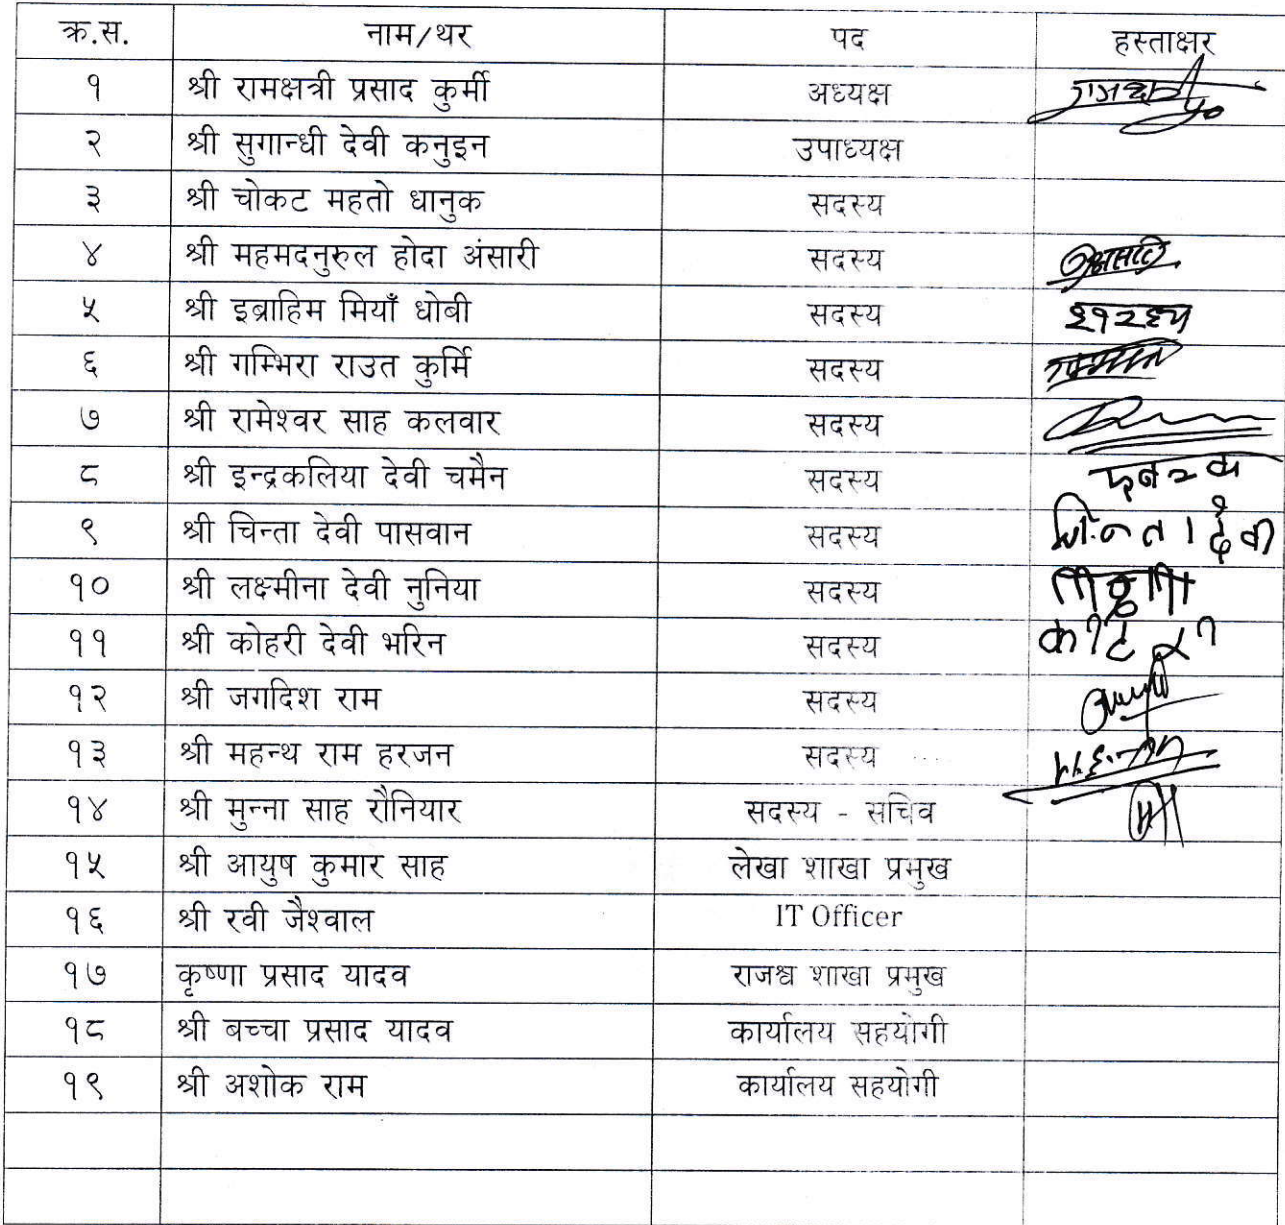 क्र.स. नाम/थर पद हस्ताक्षर
१ श्री रामक्षत्री प्रसाद कुर्मी अध्यक्ष
२ श्री सुगान्धी देवी कनुइन उपाध्यक्ष
३ श्री चोकट महतो धानुक सदस्य
४ श्री महमदनुरुल होदा अंसारी सदस्य
५ श्री इब्राहिम मियाँ धोबी सदस्य
६ श्री गम्भिरा राउत कुर्मि सदस्य
७ श्री रामेश्वर साह कलवार सदस्य
८ श्री इन्द्रकलिया देवी चमैन सदस्य
९ श्री चिन्ता देवी पासवान सदस्य चिन्ता देवी
१० श्री लक्ष्मीना देवी नुनिया सदस्य
११ श्री कोहरी देवी भरिन सदस्य
१२ श्री जगदिश राम सदस्य
१३ श्री महन्थ राम हरजन सदस्य
१४ श्री मुन्ना साह रौनियार सदस्य - सचिव
१५ श्री आयुष कुमार साह लेखा शाखा प्रमुख
१६ श्री रवी जैश्वाल IT Officer
१७ कृष्णा प्रसाद यादव राजश्व शाखा प्रमुख
१८ श्री बच्चा प्रसाद यादव कार्यालय सहयोगी
१९ श्री अशोक राम कार्यालय सहयोगी